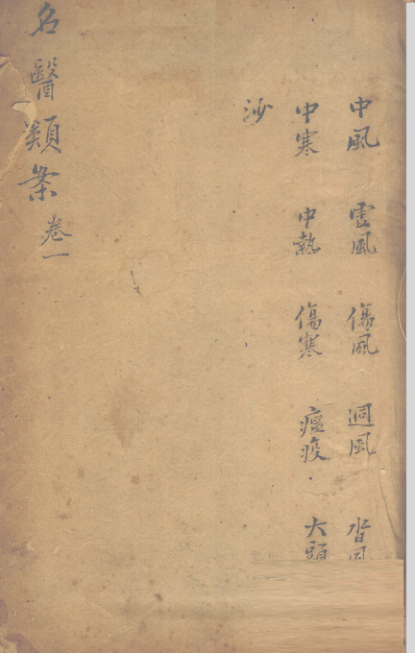 中風 虛風 傷風 迵風 沓風
中寒 中熱 傷寒 瘟疫 大頭
沙
名醫類案 卷一